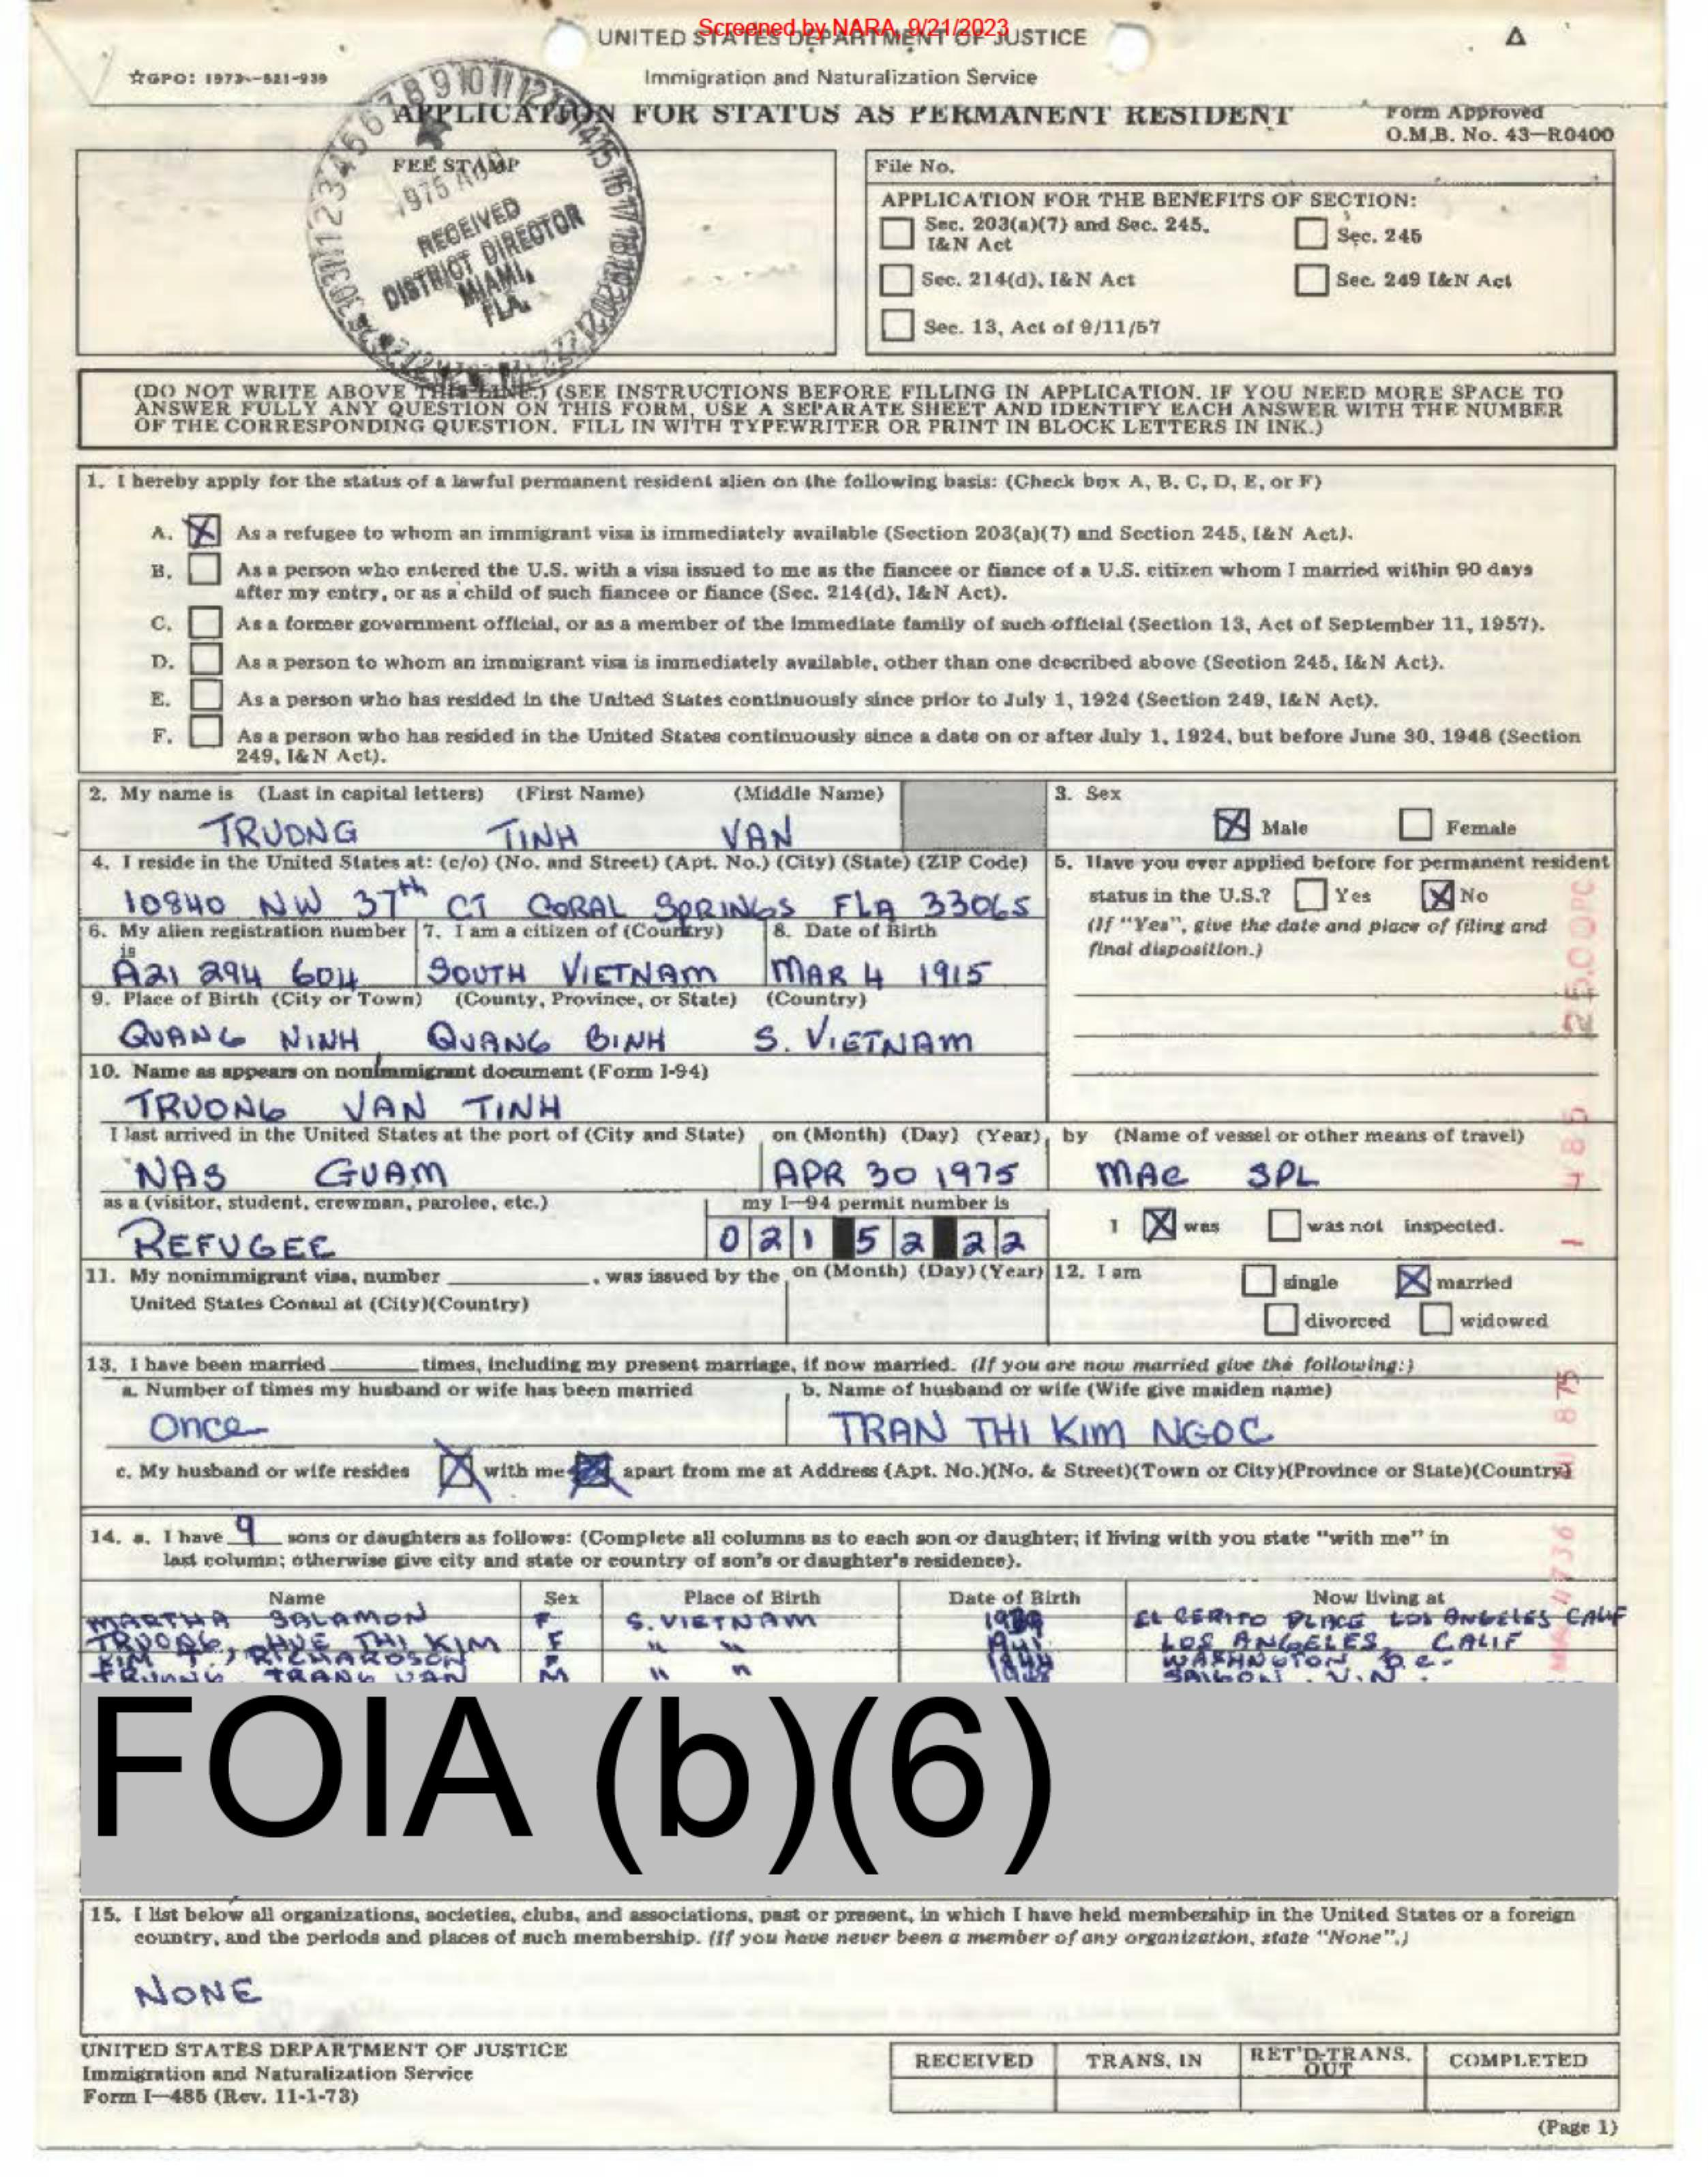 Screened by NARA, 9/21/2023
UNITED STATES DEPARTMENT OF JUSTICE
☆GPO: 1973—521-939
Immigration and Naturalization Service
APPLICATION FOR STATUS AS PERMANENT RESIDENT
Form Approved
O.M.B. No. 43—R0400
FEE STAMP
1975
RECEIVED
DISTRICT DIRECTOR
MIAMI,
FLA.
File No.
APPLICATION FOR THE BENEFITS OF SECTION:
Sec. 203(a)(7) and Sec. 245, I&N Act
Sec. 245
Sec. 214(d), I&N Act
Sec. 249 I&N Act
Sec. 13, Act of 9/11/57
(DO NOT WRITE ABOVE THIS LINE.) (SEE INSTRUCTIONS BEFORE FILLING IN APPLICATION. IF YOU NEED MORE SPACE TO
ANSWER FULLY ANY QUESTION ON THIS FORM, USE A SEPARATE SHEET AND IDENTIFY EACH ANSWER WITH THE NUMBER
OF THE CORRESPONDING QUESTION. FILL IN WITH TYPEWRITER OR PRINT IN BLOCK LETTERS IN INK.)
1. I hereby apply for the status of a lawful permanent resident alien on the following basis: (Check box A, B, C, D, E, or F)
A. X As a refugee to whom an immigrant visa is immediately available (Section 203(a)(7) and Section 245, I&N Act).
B. As a person who entered the U.S. with a visa issued to me as the fiancee or fiance of a U.S. citizen whom I married within 90 days
after my entry, or as a child of such fiancee or fiance (Sec. 214(d), I&N Act).
C. As a former government official, or as a member of the immediate family of such official (Section 13, Act of September 11, 1957).
D. As a person to whom an immigrant visa is immediately available, other than one described above (Section 245, I&N Act).
E. As a person who has resided in the United States continuously since prior to July 1, 1924 (Section 249, I&N Act).
F. As a person who has resided in the United States continuously since a date on or after July 1, 1924, but before June 30, 1948 (Section
249, I&N Act).
2. My name is (Last in capital letters) (First Name) (Middle Name)
TRUONG TINH VAN
3. Sex
X Male Female
4. I reside in the United States at: (c/o) (No. and Street) (Apt. No.) (City) (State) (ZIP Code)
10840 NW 37th CT CORAL SPRINGS FLA 33065
5. Have you ever applied before for permanent resident
status in the U.S.? Yes X No
(If "Yes", give the date and place of filing and
final disposition.)
6. My alien registration number is
A21 294 604
7. I am a citizen of (Country)
SOUTH VIETNAM
8. Date of Birth
MAR 4 1915
9. Place of Birth (City or Town) (County, Province, or State) (Country)
QUANG NINH, QUANG BINH S. VIETNAM
10. Name as appears on nonimmigrant document (Form I-94)
TRUONG VAN TINH
I last arrived in the United States at the port of (City and State)
NAS GUAM
on (Month) (Day) (Year)
APR 30 1975
by (Name of vessel or other means of travel)
MAC SPL
as a (visitor, student, crewman, parolee, etc.)
REFUGEE
my I—94 permit number is
021 52 22
I X was was not inspected.
11. My nonimmigrant visa, number , was issued by the
United States Consul at (City)(Country)
on (Month) (Day) (Year)
12. I am single X married
divorced widowed
13. I have been married times, including my present marriage, if now married. (If you are now married give the following:)
a. Number of times my husband or wife has been married
Once
b. Name of husband or wife (Wife give maiden name)
TRAN THI KIM NGOC
c. My husband or wife resides X with me apart from me at Address (Apt. No.)(No. & Street)(Town or City)(Province or State)(Country)
14. a. I have 9 sons or daughters as follows: (Complete all columns as to each son or daughter; if living with you state "with me" in
last column; otherwise give city and state or country of son's or daughter's residence).
Name Sex Place of Birth Date of Birth Now living at
MARTHA SALAMON F S. VIETNAM EL CERITO PLACE LOS ANGELES CALIF
TRUONG, HUE THI KIM F " " 1941 LOS ANGELES, CALIF
KIM T., RICHARDSON F 1944 WASHNGTON D.C.
TRUONG TRANG VAN M " " SAIGON, V.N.
FOIA (b)(6)
15. I list below all organizations, societies, clubs, and associations, past or present, in which I have held membership in the United States or a foreign
country, and the periods and places of such membership. (If you have never been a member of any organization, state "None".)
NONE
UNITED STATES DEPARTMENT OF JUSTICE
Immigration and Naturalization Service
Form I—485 (Rev. 11-1-73)
RECEIVED TRANS. IN RET'D-TRANS. OUT COMPLETED
(Page 1)